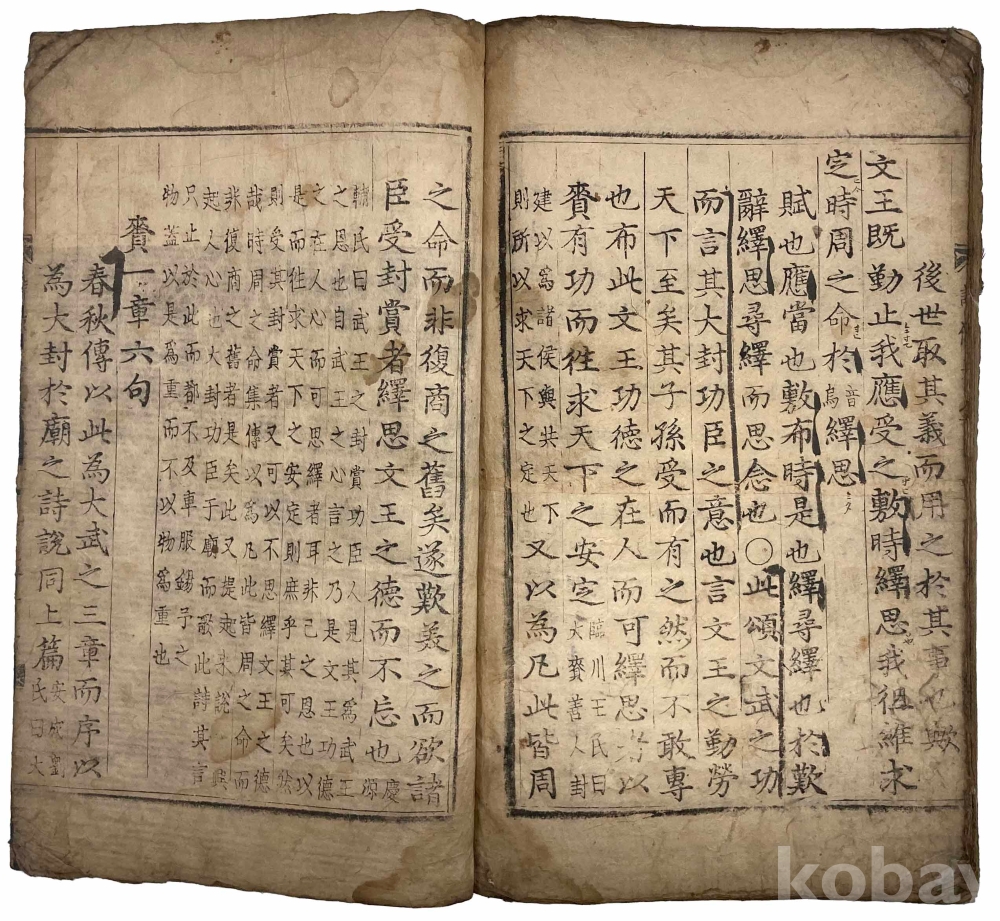 後世取其義而用之於其事也歟
文王既勤止我應受之敷時繹思我徂維求
定時周之命於音烏繹思
賦也應當也敷布時是也繹尋繹也於歎
辭繹思尋繹而思念也○此頌文武之功
而言其大封功臣之意也言文王之勤勞
天下至矣其子孫受而有之然而不敢專
也布此文王功德之在人而可繹思者以
賚有功而往求天下之安定臨川王氏曰大賚善人封
建以為諸侯與共天下則所以求天下之定也又以為凡此皆周
之命而非復商之舊矣遂歎美之而欲諸
臣受封賞者繹思文王之德而不忘也慶源
輔氏曰武王之封賞功臣人見其為武王
之恩也自武王之心言之乃是文王功德
之在人心而可思繹者耳非己之恩也以
是而往求天下之安定則庶乎其可矣然
則受其封賞者又可以不思繹文王之德
哉時周之命集傳以為凡此皆周之命而
非復商之舊者是矣此又提起來說與
起人心也大封功臣于廟而歌此詩其言
只止於此而都不及車服錫予之
物蓋以是為重而不以物為重也
賚一章六句
春秋傳以此為大武之三章而序以
為大封於廟之詩說同上篇安成劉氏曰大
kobay